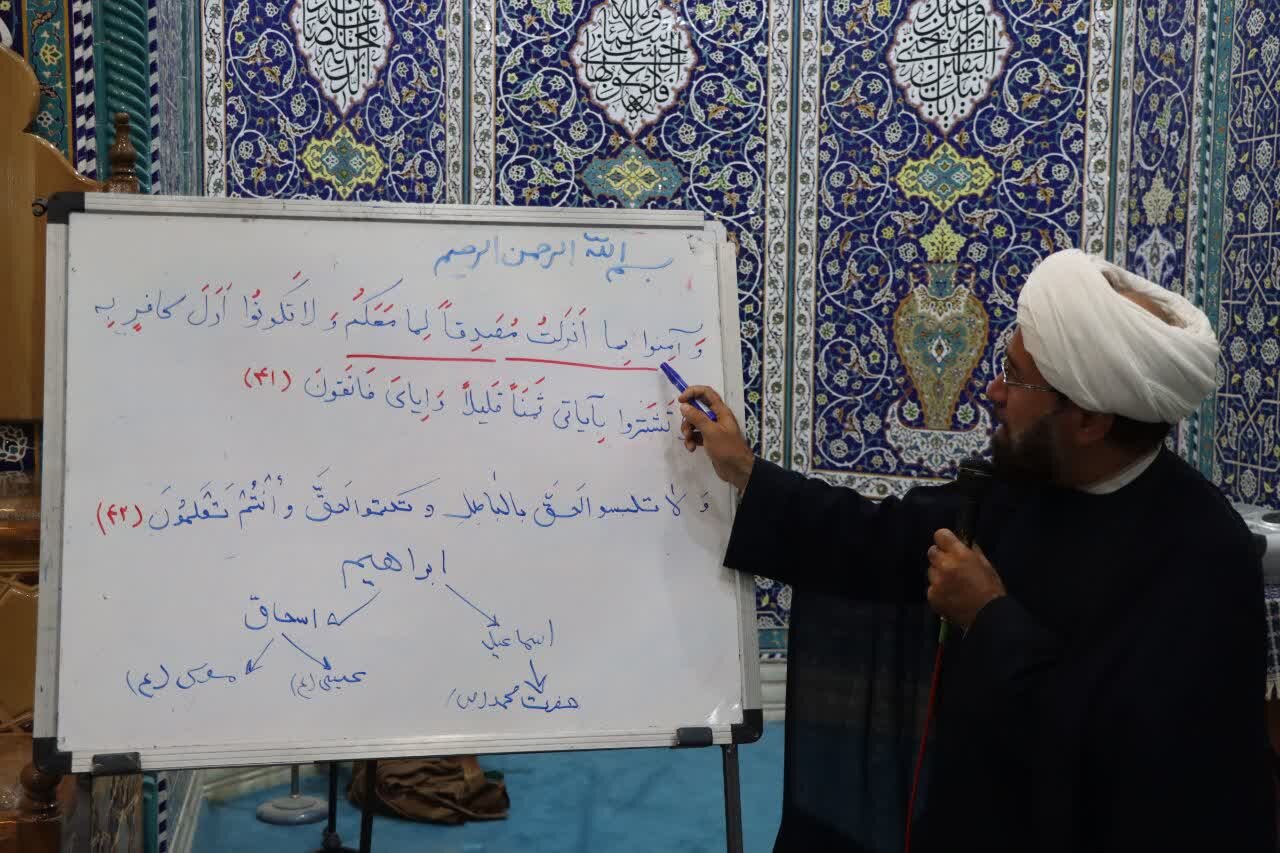 بسم الله الرحمن الرحیم
وَ آمِنوا بِما اَنزَلتُ مُصَدِقاً لِما مَعَکُم وَ لا تَکونُوا اَوَّلَ کافِرٍ بِه
تَشتَروا بِآیاتی ثَمَناً قَلیلاً وَ اِیایَ فَاتَقونَ (۴۱)
وَ لا تلبسو الَحَقَّ بالباطِلِ و تکتموالحَقَّ و أَنْتُمْ تَعْلَمُونَ (۴۲)
ابراهیم
اسماعیل
اسحاق
حضرت محمد(ص)
عیسی (ع)
موسی (ع)